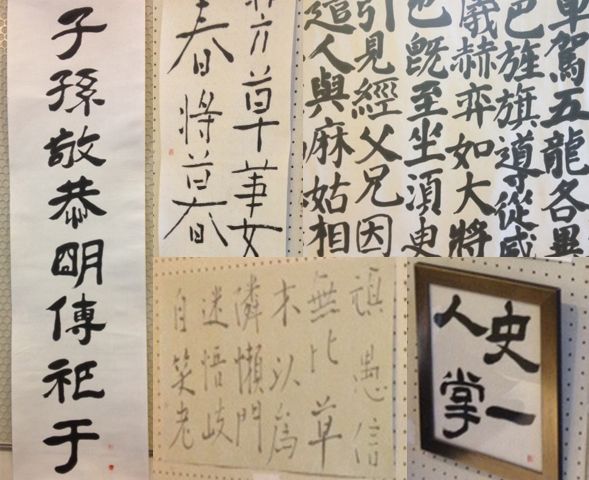 子孫敬恭明傳祀于
草華
春將暮
車駕五龍各異
色旌旗導從威
儀赫弈如大將
也既至坐須臾
引見經父兄因
遣人與麻姑相
頑愚信
無比草
木以為
隣懶問
迷悟岐
自笑老
史一
人掌